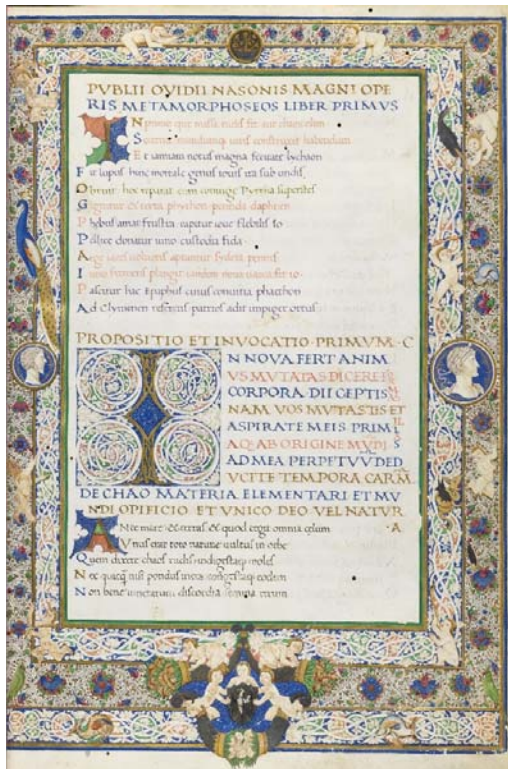 PVBLII OVIDII NASONIS MAGNI OPE
RIS METAMORPHOSEOS LIBER PRIMVS
IN primo
Et iam iam notus magna feritate lychaon
Fit lupus hinc mortale genus iouis ira sub undis
Obruitur hec reparat cum coniuge Pyrrha superstes
Gignitur & terra phython perimit daphnen
Phebus amat frustra capitur ioue flebilis Io
Pellice donatur iuno custodia fida
Argo
Pascitur hac Epaphus cuius conuitia phaethon
Ad Clymenen referens patrios adit impiger ortus
PROPOSITIO ET INVOCATIO PRIMVM C
IN NOVA FERT ANIM
VS MVTATAS DICERE F
CORPORA DII CEPTIS
NAM VOS MVTASTIS ET
ASPIRATE MEIS PRIM
AQ AB ORIGINE MVDI
AD MEA PERPETVV DED
VCITE TEMPORA CARM
DE CHAO MATERIA ELEMENTARI ET MV
NDI OPIFICIO ET VNICO DEO VEL NATVR
A
ANte mare & terras & quod tegit omnia celum
Vnus erat toto nature uultus in orbe
Quem dixere chaos rudis indigestaq moles
Nec quicq nisi pondus iners congestaq eodem
Non bene iunctarum discordia semina rerum